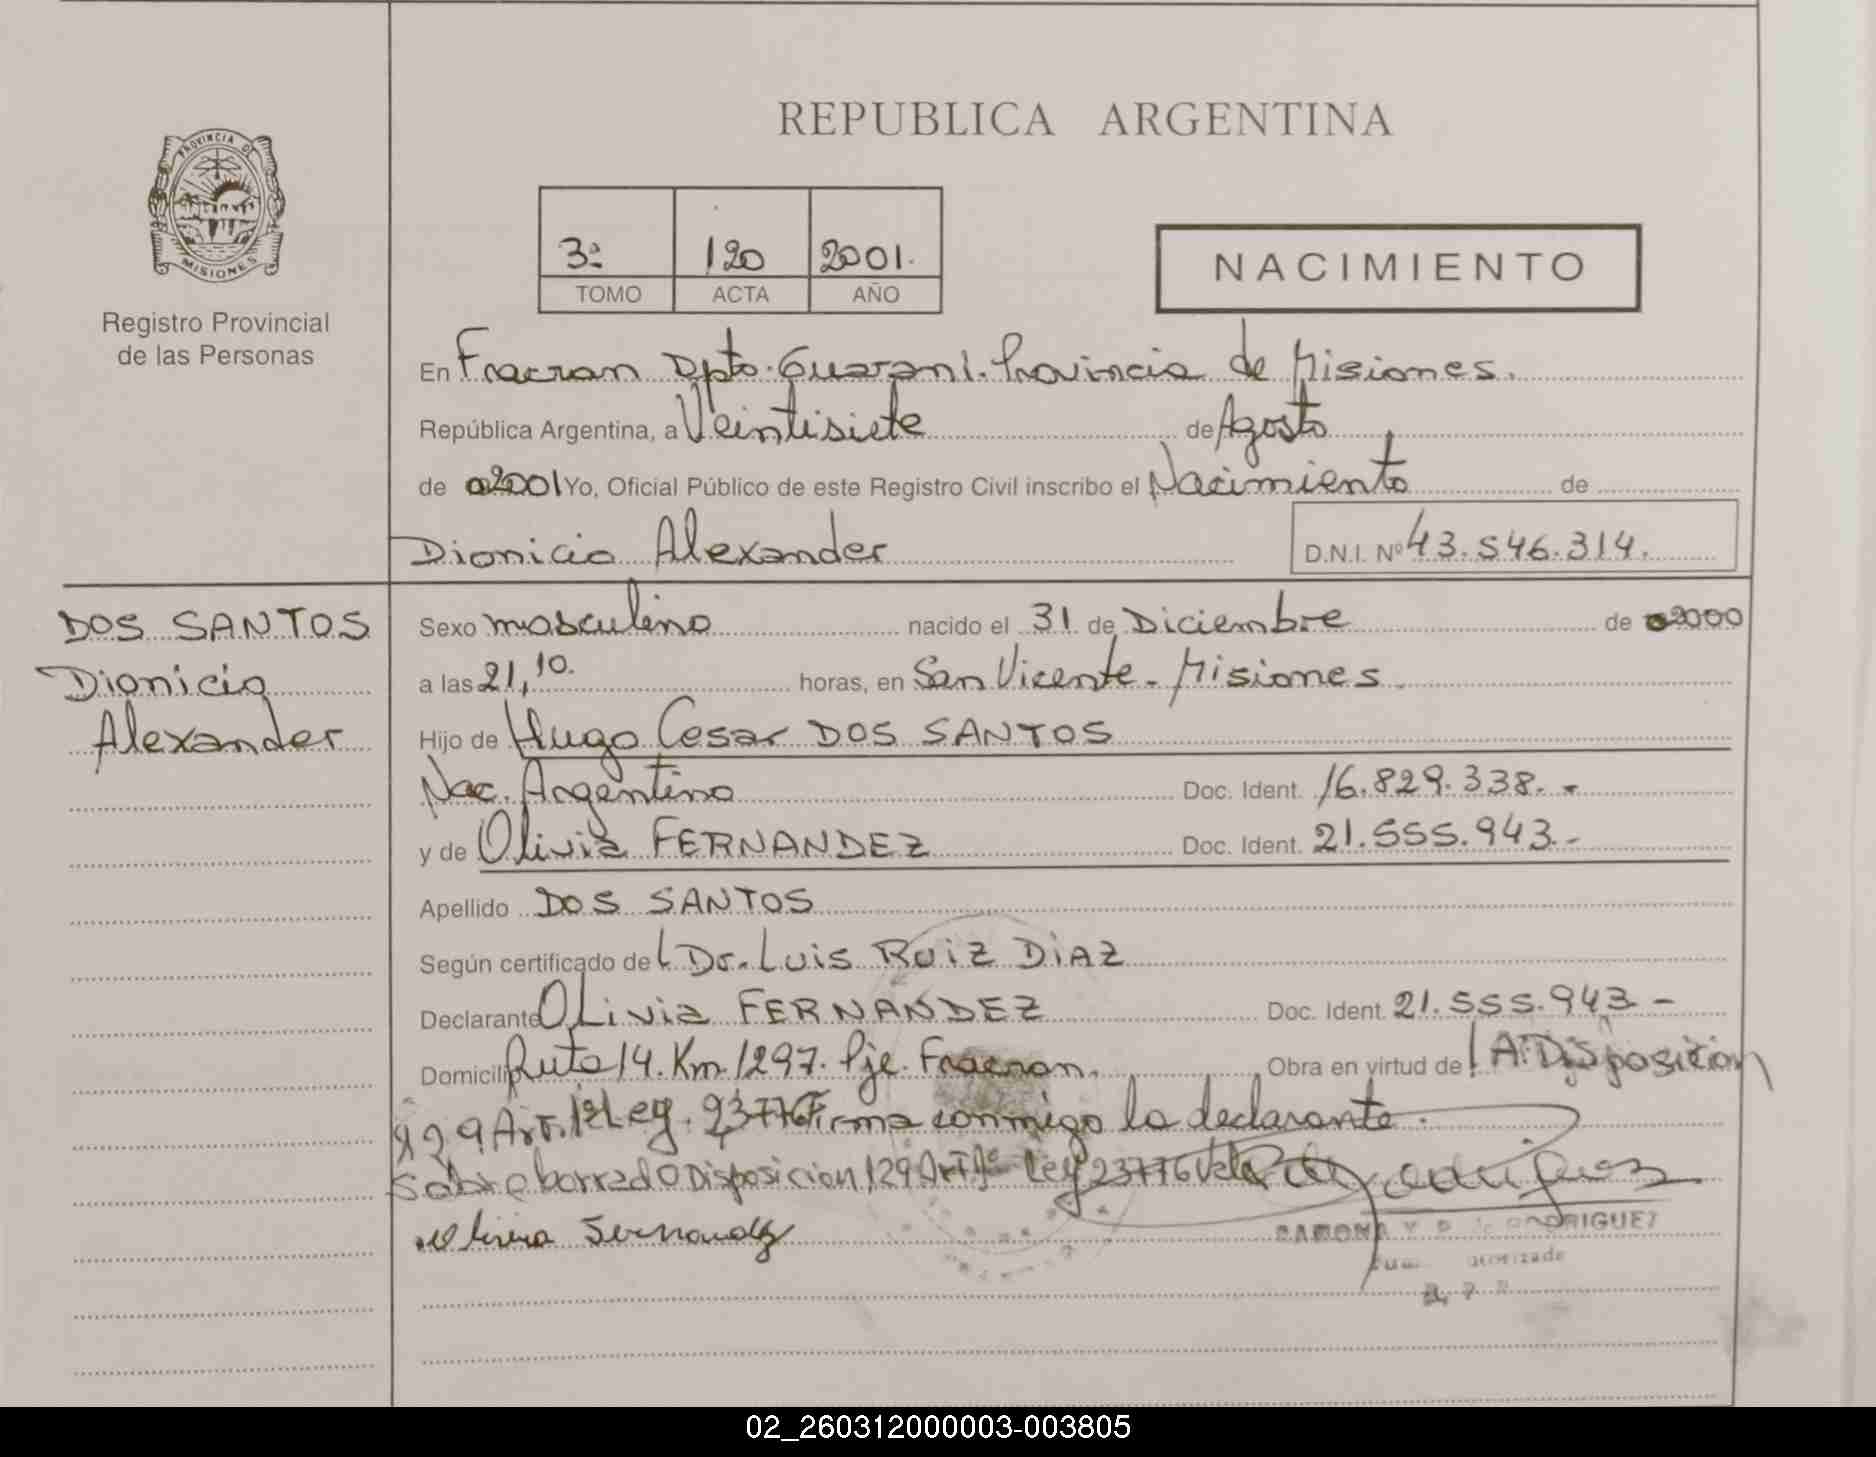 REPUBLICA ARGENTINA
PROVINCIA DE
MISIONES
Registro Provincial
de las Personas
3ª 120 2001.
TOMO ACTA AÑO
NACIMIENTO
En Fracran Dpto. Guarani. Provincia de Misiones.
República Argentina, a Veintisiete de Agosto
de 2001 Yo, Oficial Público de este Registro Civil inscribo el Nacimiento de
Dionicio Alexander D.N.I. Nº 43.546.314.
DOS SANTOS
Dionicio
Alexander
Sexo masculino nacido el 31 de Diciembre de 2000
a las 21,10. horas, en San Vicente - Misiones.
Hijo de Hugo Cesar DOS SANTOS
Nac. Argentino Doc. Ident. 16.829.338.-
y de Olivia FERNANDEZ Doc. Ident. 21.555.943.-
Apellido DOS SANTOS
Según certificado de Dr. Luis RUIZ DIAZ
Declarante OLivia FERNANDEZ Doc. Ident. 21.555.943-
Domicilio Ruta 14. Km. 1297. Pje. Fracran. Obra en virtud de A: Disposición
129 Art. 1º Ley. 23776 Firma conmigo la declarante.
Sobre borrado Disposicion 129 Art 1º Ley 23776 Vale
Olivia Fernandez
RAMONA RODRIGUEZ
02_260312000003-003805